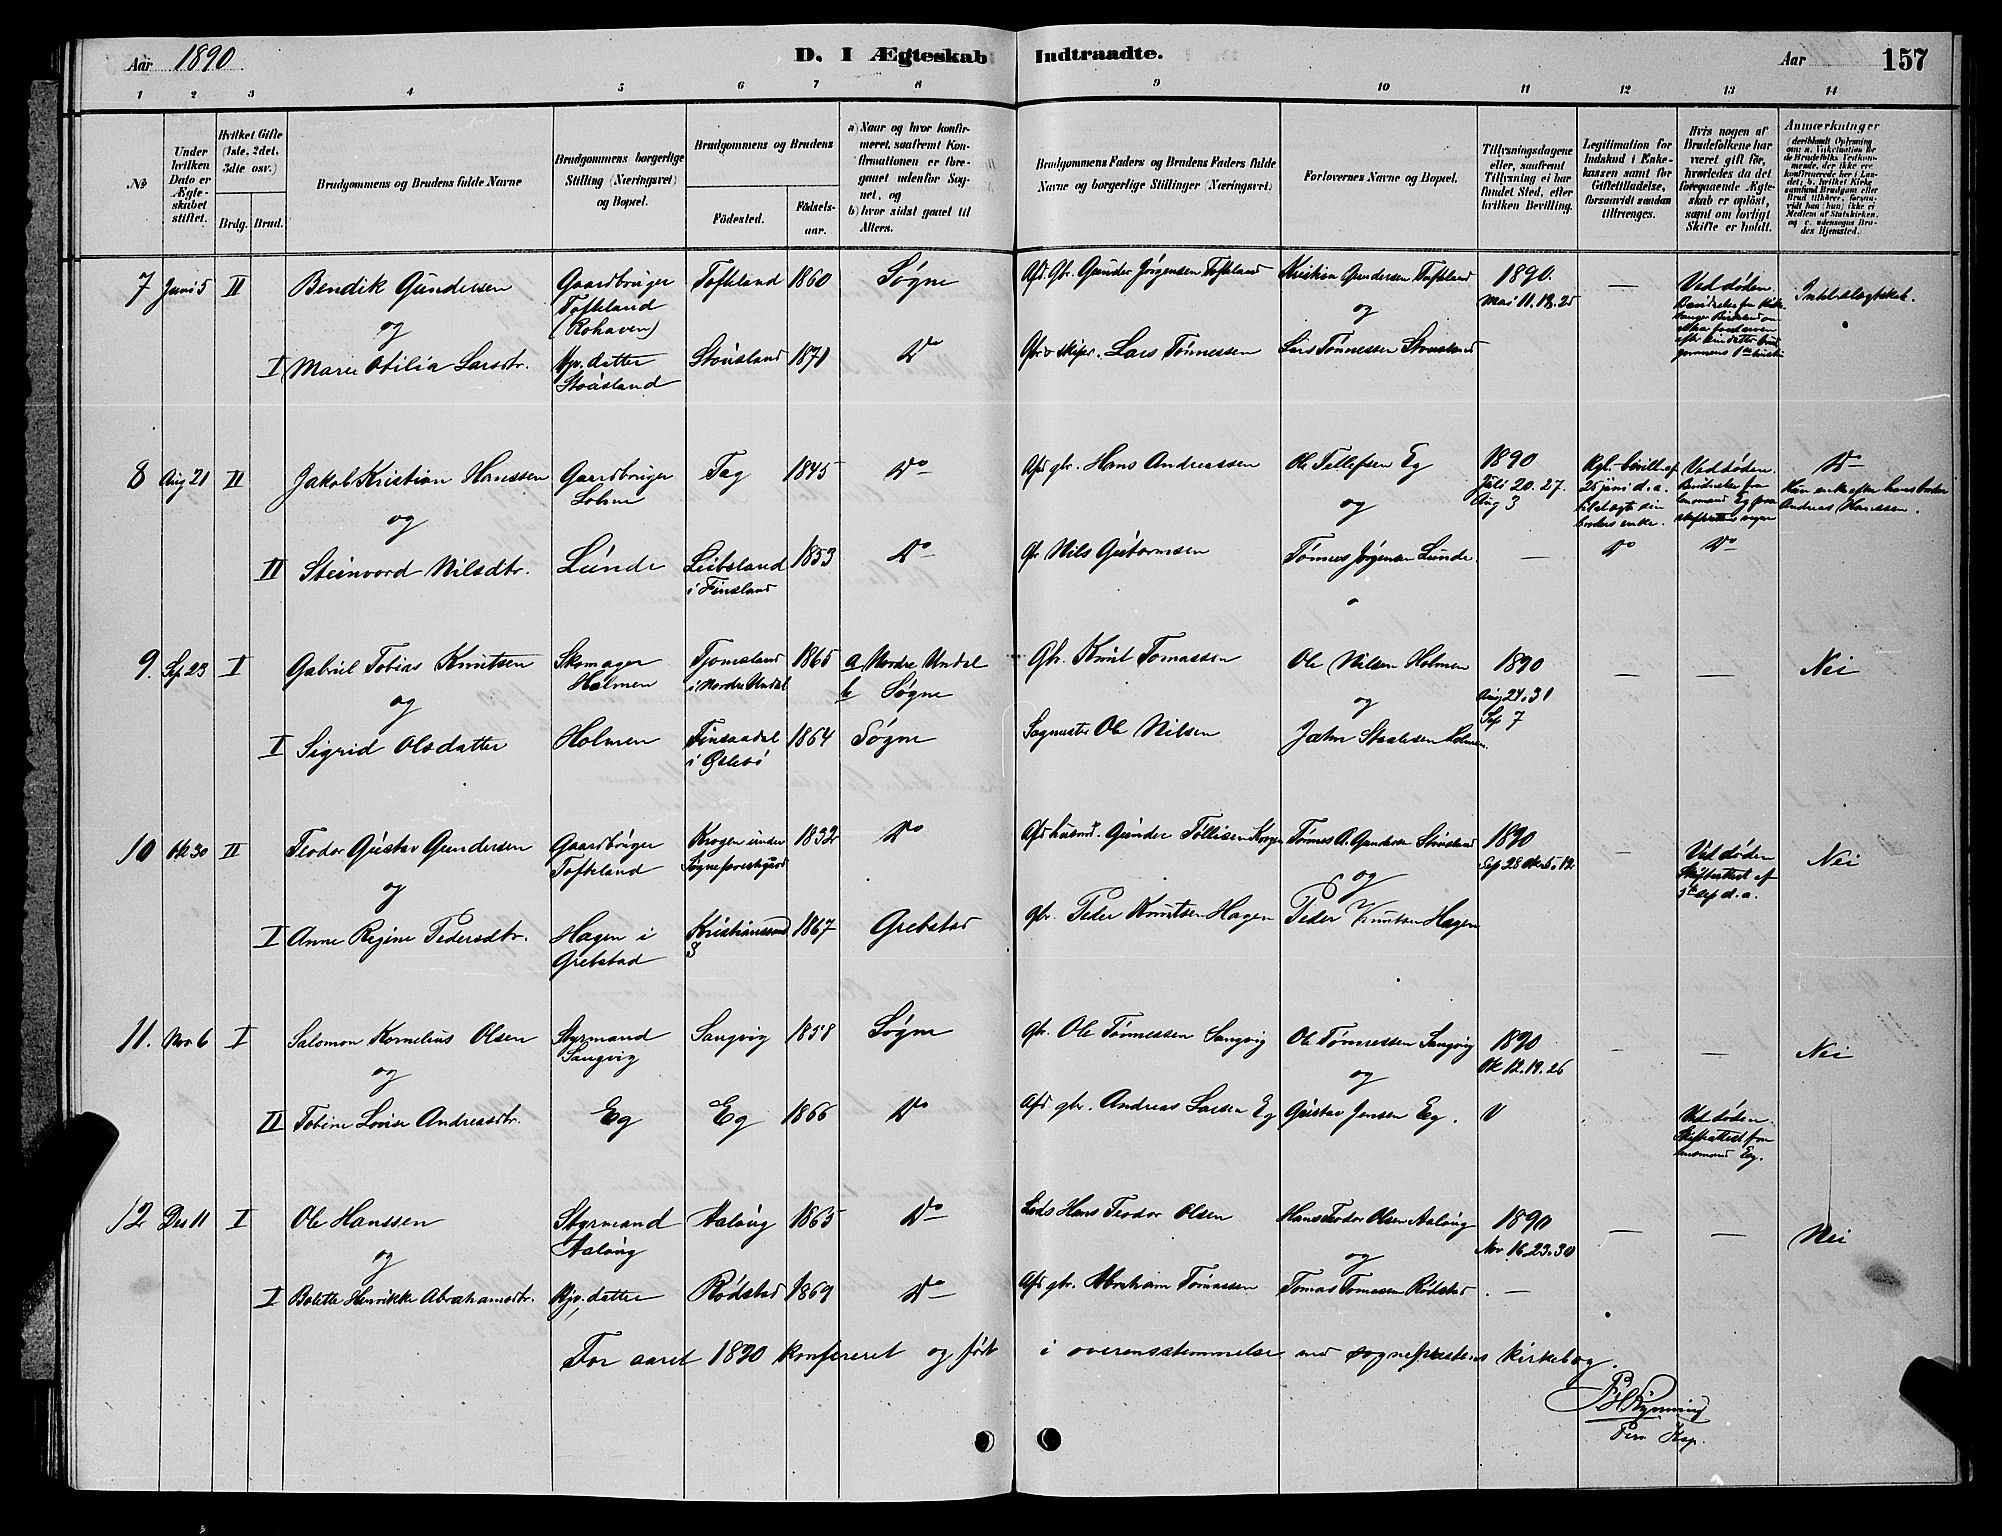 Aar 1890
D. I Ægteskab Indtraadte.
Aar 157
1 2 3 4 5 6 7 8 9 10 11 12 13 14
№
Under hvilken Dato er Ægteskabet stiftet.
Hvilket Gifte (1ste, 2det, 3die osv.)
Brdg. Brud.
Brudgommens og Brudens fulde Navne
Brudgommens borgerlige Stilling (Næringsvei) og Bopæl.
Brudgommens og Brudens
Fødested.
Fødselsaar.
a) Naar og hvor konfirmeret, saafremt Konfirmationen er foregaaet udenfor Sognet, og
b) hvor sidst gaaet til Alters.
Brudgommens Faders og Brudens Faders fulde Navne og borgerlige Stillinger (Næringsvei).
Forlovernes Navne og Bopæl.
Tillysningsdagene eller, saafremt Tillysning ei har fundet Sted, efter hvilken Bevilling.
Legitimation for Indskud i Enkekassen samt for Giftetilladelse, forsaavidt saadan tiltrænges.
Hvis nogen af Brudefolkene har været gift før, hvorledes da det foregaaende Ægteskab er opløst, samt om lovligt Skifte er holdt.
Anmærkninger
7 Juni 5 II Bendik Gundersen Gaardbruger Tofteland (Rohaven) Tofteland 1860 Søgne Afd. Gbr. Gunder Jørgensen Tofteland Kristian Gundersen Tofteland 1890. Mai 11. 18. 25 — Ved døden. Intet slægtskab.
og og
I Marie Otilia Larsdtr. Hjv. datter Stousland Stousland 1871 Do Gbr. o. Skipr. Lars Tønnessen Lars Tønnessen Stousland
8 Aug 21 II Jakob Kristian Hanssen Gaardbruger Lohne Tag 1845 Do Afd gbr. Hans Andreassen Ole Tellefsen Eg 1890 Juli 20. 27. Aug 3 Kgl. bevill. af 25 juni d. a. til at ægte sin broders enke. Ved døden. Do Hun enke efter hans broder Andreas Hanssen.
og og
II Steinvord Nilsdtr. Lunde Leibsland i Finsland 1853 Do Gbr Nils Guttormsen Tønnes Jørgensen Lunde — Do Do
9. Sep. 23 I Gabriel Tobias Knutsen Skomager Holmen Tjomsland i Nordre Undal 1865 a Nordre Undal b Søgne Gbr. Knut Tomassen Ole Nilsen Holmen 1890 Aug 24. 31 Sep 7 — — Nei
og og
I Sigrid Olsdatter Holmen Finsaadal i Øslebø 1864 Søgne Sagmester Ole Nilsen Jahn Staalesen Holmen
10 Okt 30 II Teodor Gustav Gundersen Gaardbruger Tofteland Krogen under Søgne forestgaard 1832 Do Afd husmd. Gunder Tollisen Krogen Tønnes A. Gundersen Stousland 1890 Sep 28 Okt 5. 12 — Ved døden Skifteattest af 5te sep d. a. Nei
og og
I Anne Regine Pedersdtr. Hagen i Grebstad Kristianssand S 1867 Grebstad gbr. Peder Knutsen Hagen Peder Knutsen Hagen
11. Nov 6 I Salomon Kornelius Olsen Styrmand Sangvig Sangvig 1858 Søgne gbr. Ole Tønnessen Sangvig Ole Tønnessen Sangvig 1890 Ok 12. 19. 26 — — Nei
og og
II Tobine Lovise Andreasdtr. Eg Eg 1866 Do Afd gbr. Andreas Larsen Eg Gustav Jensen Eg. Ved døden. Skifteattest fra lensmand Eg.
12 Des 11 I Ole Hanssen Styrmand Aaløug Aaløug 1865 Do Lods Hans Teodor Olsen Hans Teodor Olsen Aaløug 1890 Nov 16. 23. 30 — — Nei
og og
I Bolette Henrikke Abrahamsdtr. Hjv. datter Rødstad 1869 Do Afd gbr. Abraham Tomassen Tomas Tomasen Rødstad —
For aaret 1890 konfereret og ført i overensstemmelse med sognepræstens kirkebog.
Pers Kap.